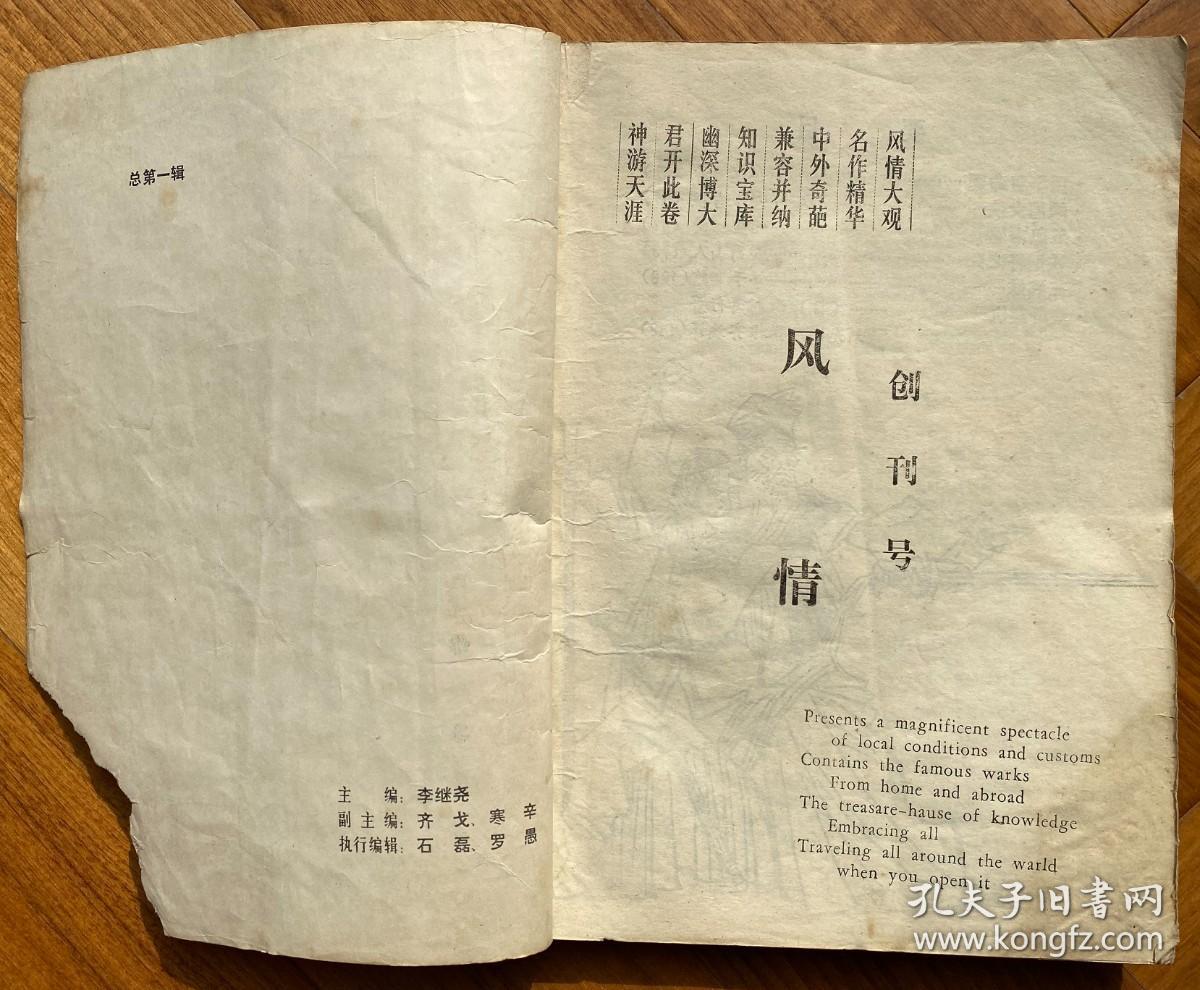 总第一辑
主 编：李继尧
副主编：齐 戈、寒 辛
执行编辑：石 磊、罗 愚
风情大观
名作精华
中外奇葩
兼容并纳
知识宝库
幽深博大
君开此卷
神游天涯
创刊号
风情
Presents a magnificent spectacle
of local conditions and customs
Contains the famous warks
From home and abroad
The treasare-hause of knowledge
Embracing all
Traveling all around the warld
when you open it
孔夫子旧书网
www.kongfz.com